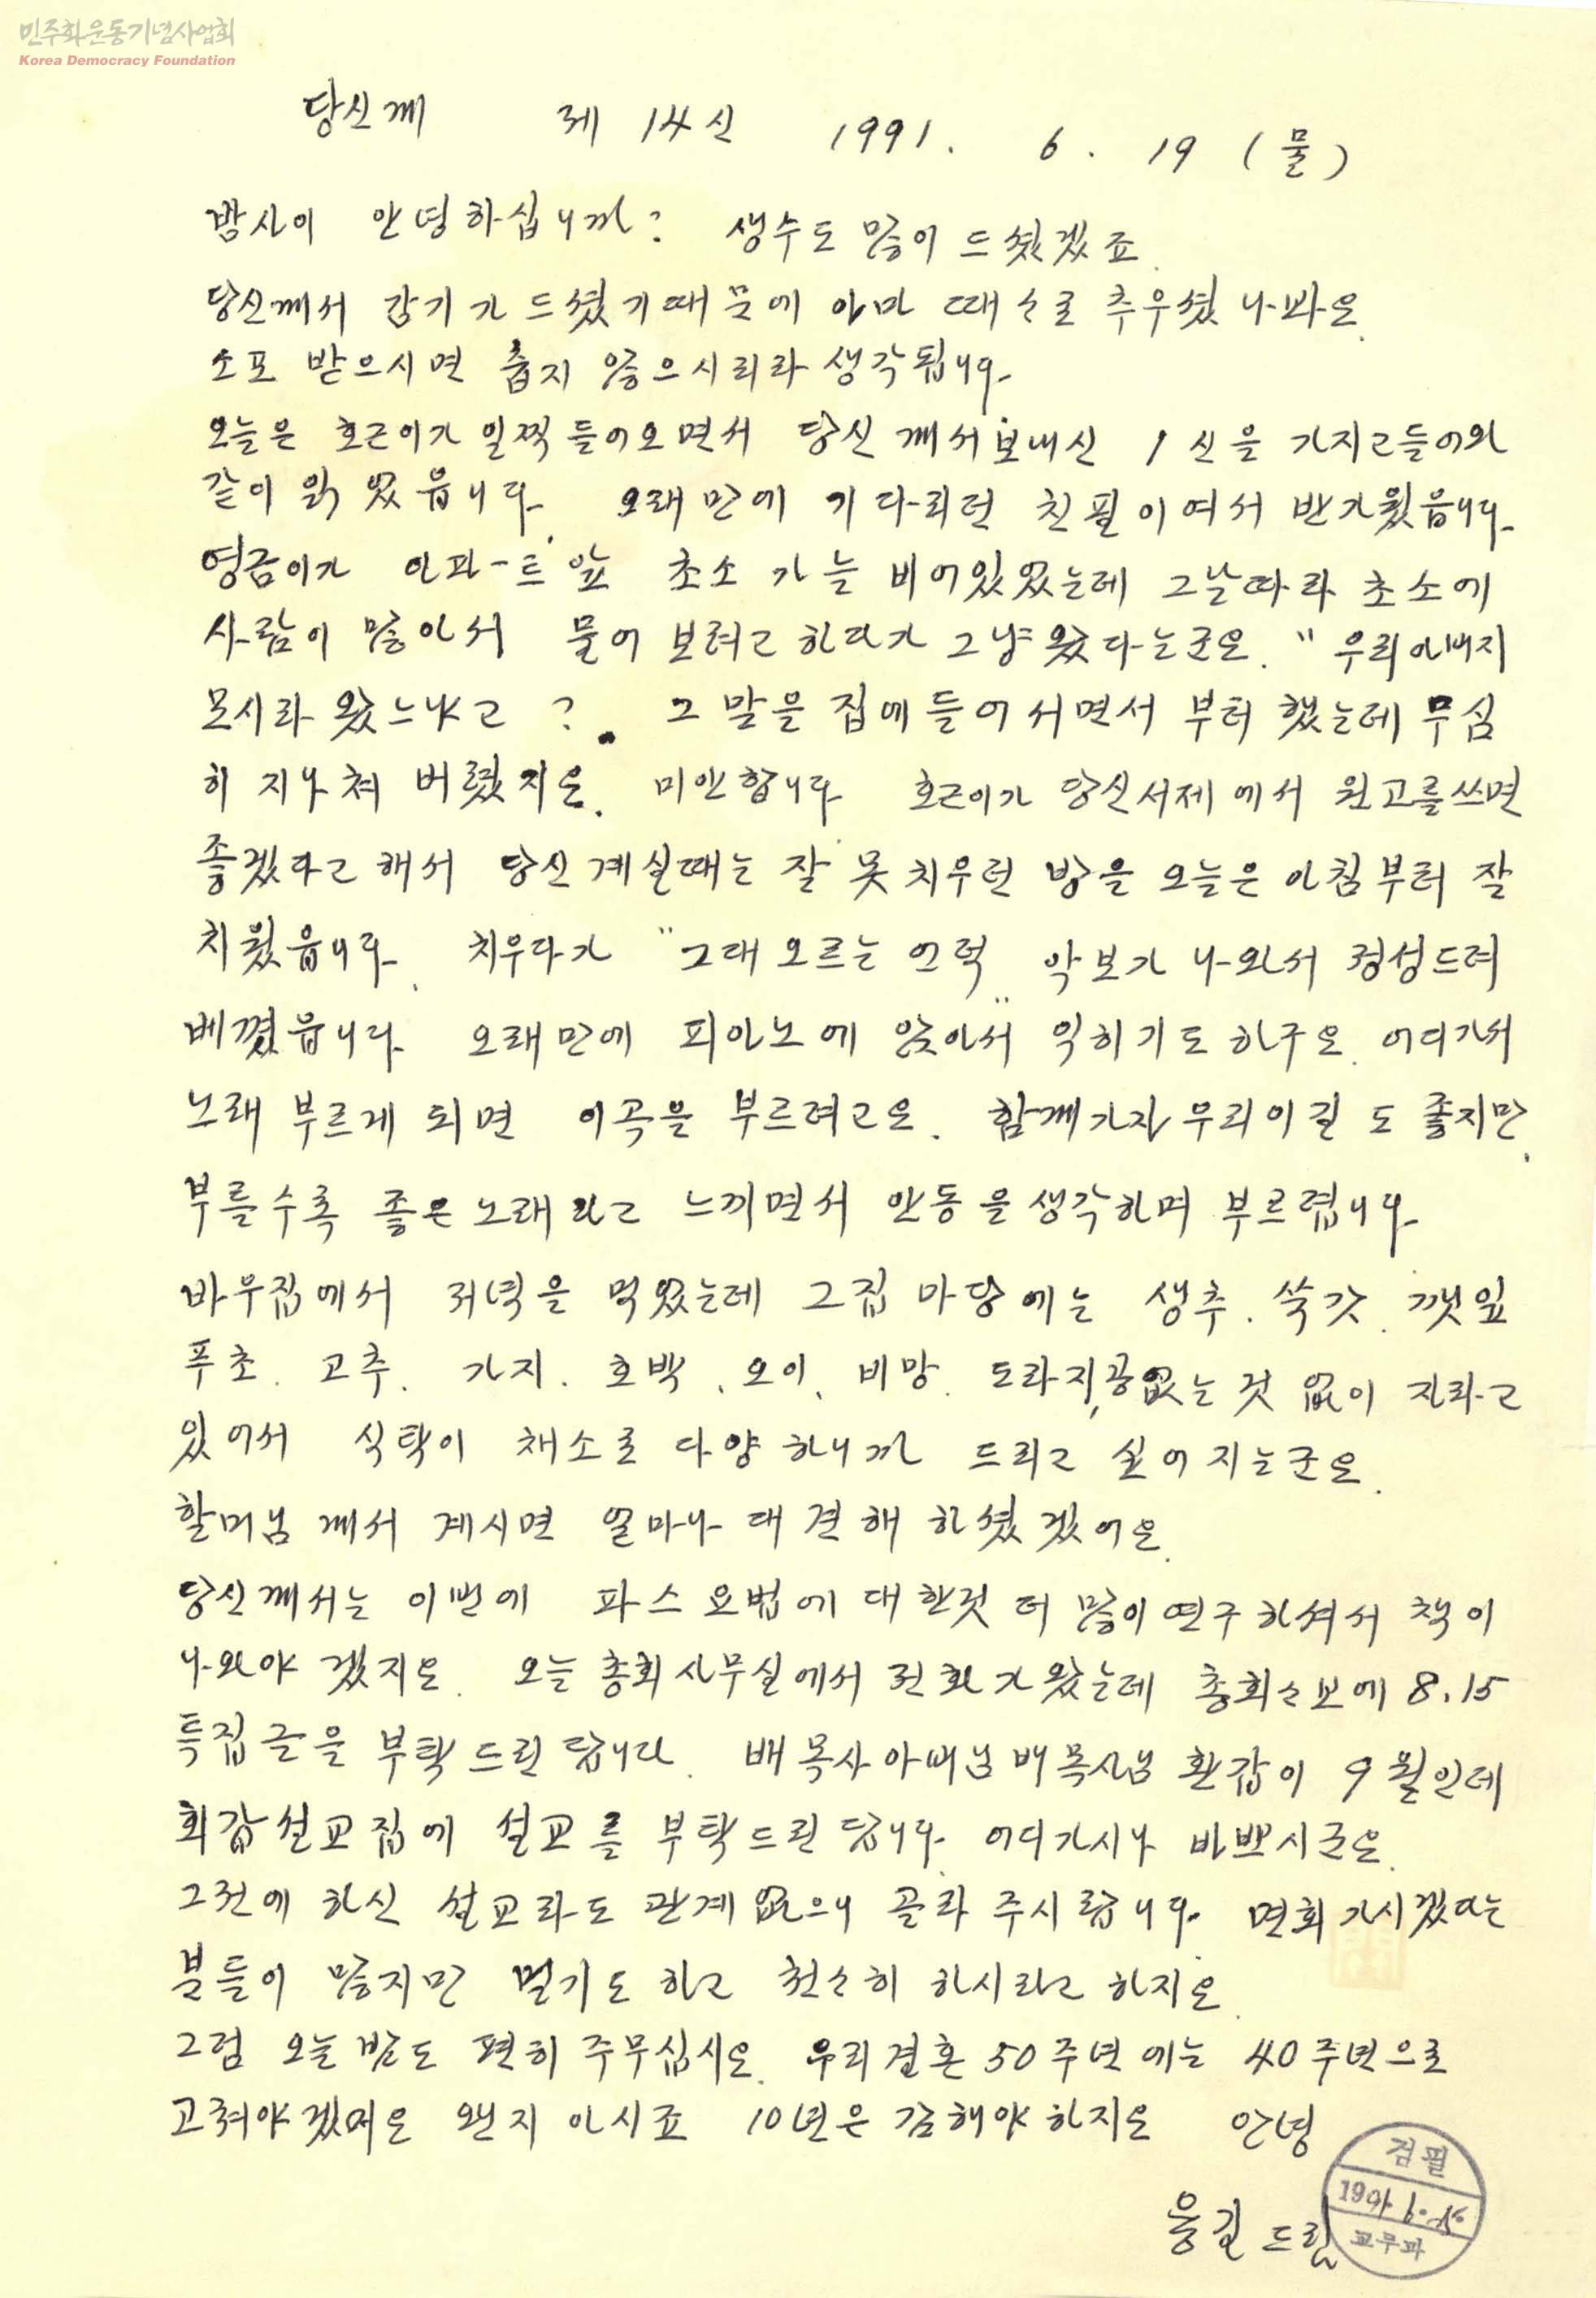 민주화운동기념사업회
Korea Democracy Foundation
당신께 제 14신 1991. 6. 19 (물)
밤사이 안녕하십니까? 생수도 많이 드셨겠죠.
당신께서 감기가 드셨기때문에 아마 때스로 추우셨나봐요.
소포 받으시면 춥지 않으시리라 생각됩니다.
오늘은 호근이가 일찍 들어오면서 당신께서 보내신 1신을 가지고들어와
같이 읽었읍니다. 오래만에 기다리던 친필이여서 반가웠읍니다.
영금이가 아파-트 앞 초소가 늘 비어있었는데 그날따라 초소에
사람이 많아서 물어 보려고 하다가 그냥 왔다는군요. "우리아버지
모시라 왔느냐고? 그 말을 집에 들어서면서 부터 했는데 무심
히 지나쳐 버렸지요. 미안합니다. 호근이가 당신서제에서 원고를쓰면
좋겠다고 해서 당신 계실때는 잘 못 치우던 방을 오늘은 아침부터 잘
치웠읍니다. 치우다가 "그대 오르는 언덕" 악보가 나와서 정성드려
베꼈읍니다. 오래만에 피아노에 앉아서 익히기도 하구요. 어디가서
노래 부르게 되면 이곡을 부르려고요. 함께가자 우리이길도 좋지만,
부를수록 좋은노래라고 느끼면서 안동을생각하며 부르렵니다.
바우집에서 저녁을 먹었는데 그집 마당에는 생추. 쑥갓. 깻잎
푸초. 고추. 가지. 호박. 오이. 비망. 도라지, 콩 없는 것 없이 자라고
있어서 식탁이 채소로 다양하니까 드리고 싶어지는군요.
할머님께서 계시면 얼마나 대견해 하셨겠어요.
당신께서는 이번에 파스요법에 대한것 더 많이 연구하셔서 책이
나와야겠지요. 오늘 총회사무실에서 전화가왔는데 총회스보에 8.15
특집글을 부탁드린답니다. 배목사아버님 배목사님 환갑이 9월인데
회갑설교집에 설교를 부탁드린답니다. 어디가시나 바쁘시군요.
그전에 하신 설교라도 관계없으니 골라 주시랍니다. 면회가시겠다는
분들이 많지만 멀기도 하고 천스히 하시라고 하지요.
그럼 오늘밤도 편히 주무십시요. 우리결혼 50주년에는 40주년으로
고쳐야겠어요 왠지 아시죠 10년은 감해야하지요 안녕
용길 드림
검필
교무과